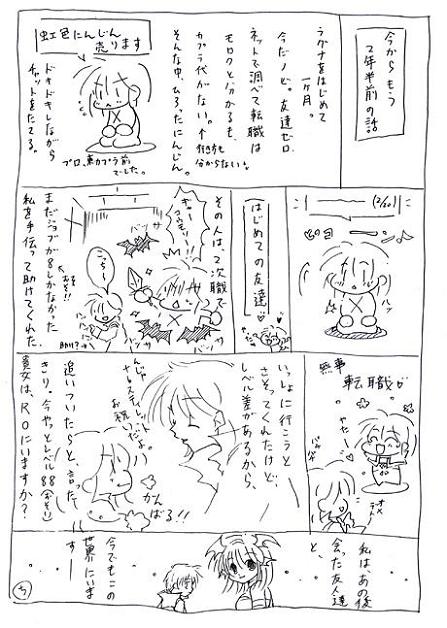 今からもう
２年半前の話
ラグナをはじめて
一ヶ月。
今だノビ。友達ゼロ
ネットで調べて転職は
モロクと分かるも、
カプラ代がない。
行き方も
分からない。
そんな中、ひろったにんじん。
虹色にんじん
売ります
ドキドキしながら
チャットをたてる。
プロ、東カプラ前
でした。
(2/20)
ピヨ
ハッ
はじめての友達
その人は、２次職で
まだジョブが８しかなかった
私を手伝って助けてくれた。
おそ!!
バッサ
バッサ
こっちー
無事
転職
やたー
オメ
でとー
いっしょに行こうと
さそってくれたけど、
レベル差があるから、
お祝いだよ。
がんばる!!
追いついたらと、言った
きり。今やっとレベル88
貴女は、ROにいますか？
私は、あの後
会った友人達
と、
今でもこの
世界にいま
すー